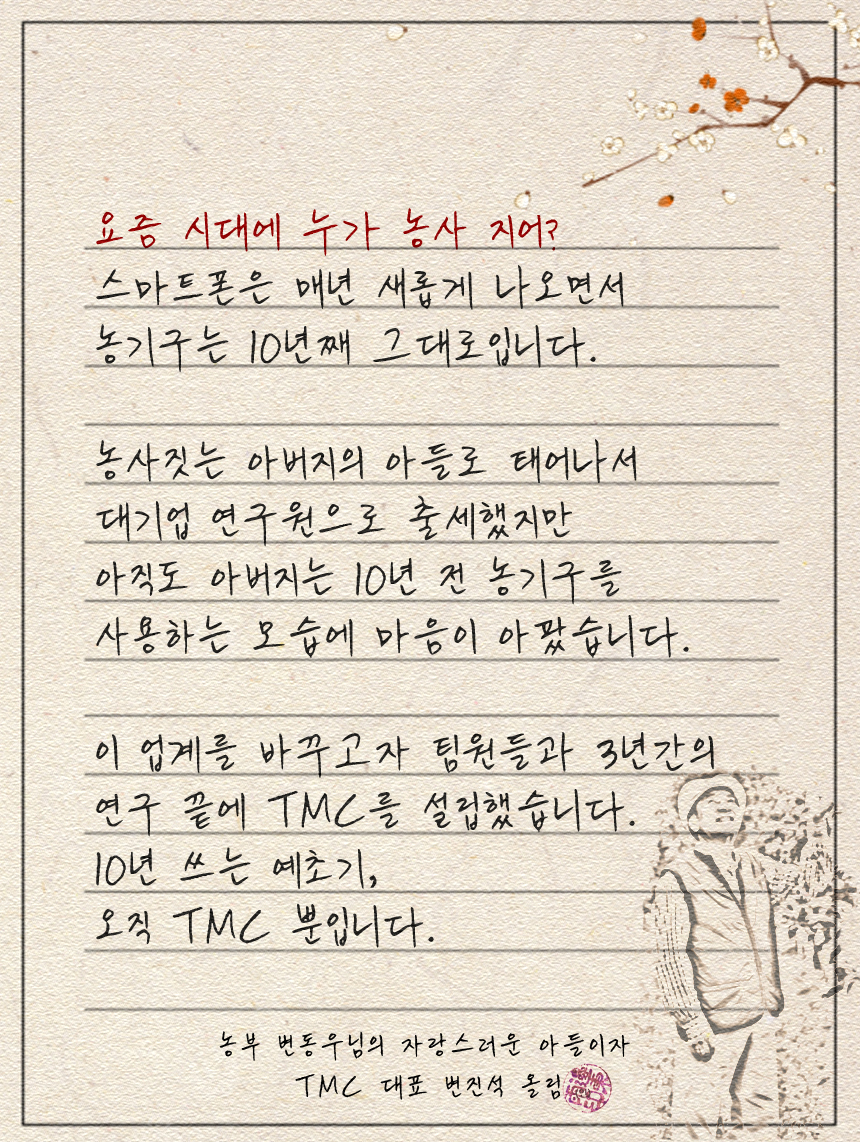 요즘 시대에 누가 농사 지어?
스마트폰은 매년 새롭게 나오면서
농기구는 10년째 그대로입니다.
농사짓는 아버지의 아들로 태어나서
대기업 연구원으로 출세했지만
아직도 아버지는 10년 전 농기구를
사용하는 모습에 마음이 아팠습니다.
이 업계를 바꾸고자 팀원들과 3년간의
연구 끝에 TMC를 설립했습니다.
10년 쓰는 예초기,
오직 TMC 뿐입니다.
농부 변동우님의 자랑스러운 아들이자
TMC 대표 변진석 올림